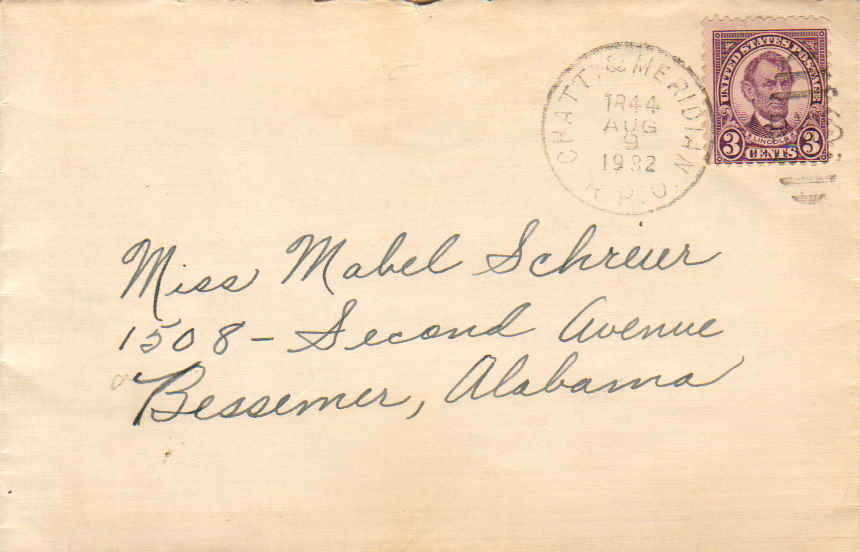 CHATT. & MERIDIAN
TR44
AUG
9
1932
R.P.O.
UNITED STATES POSTAGE
LINCOLN
3 CENTS 3
Miss Mabel Schreier
1508 - Second Avenue
Bessemer, Alabama